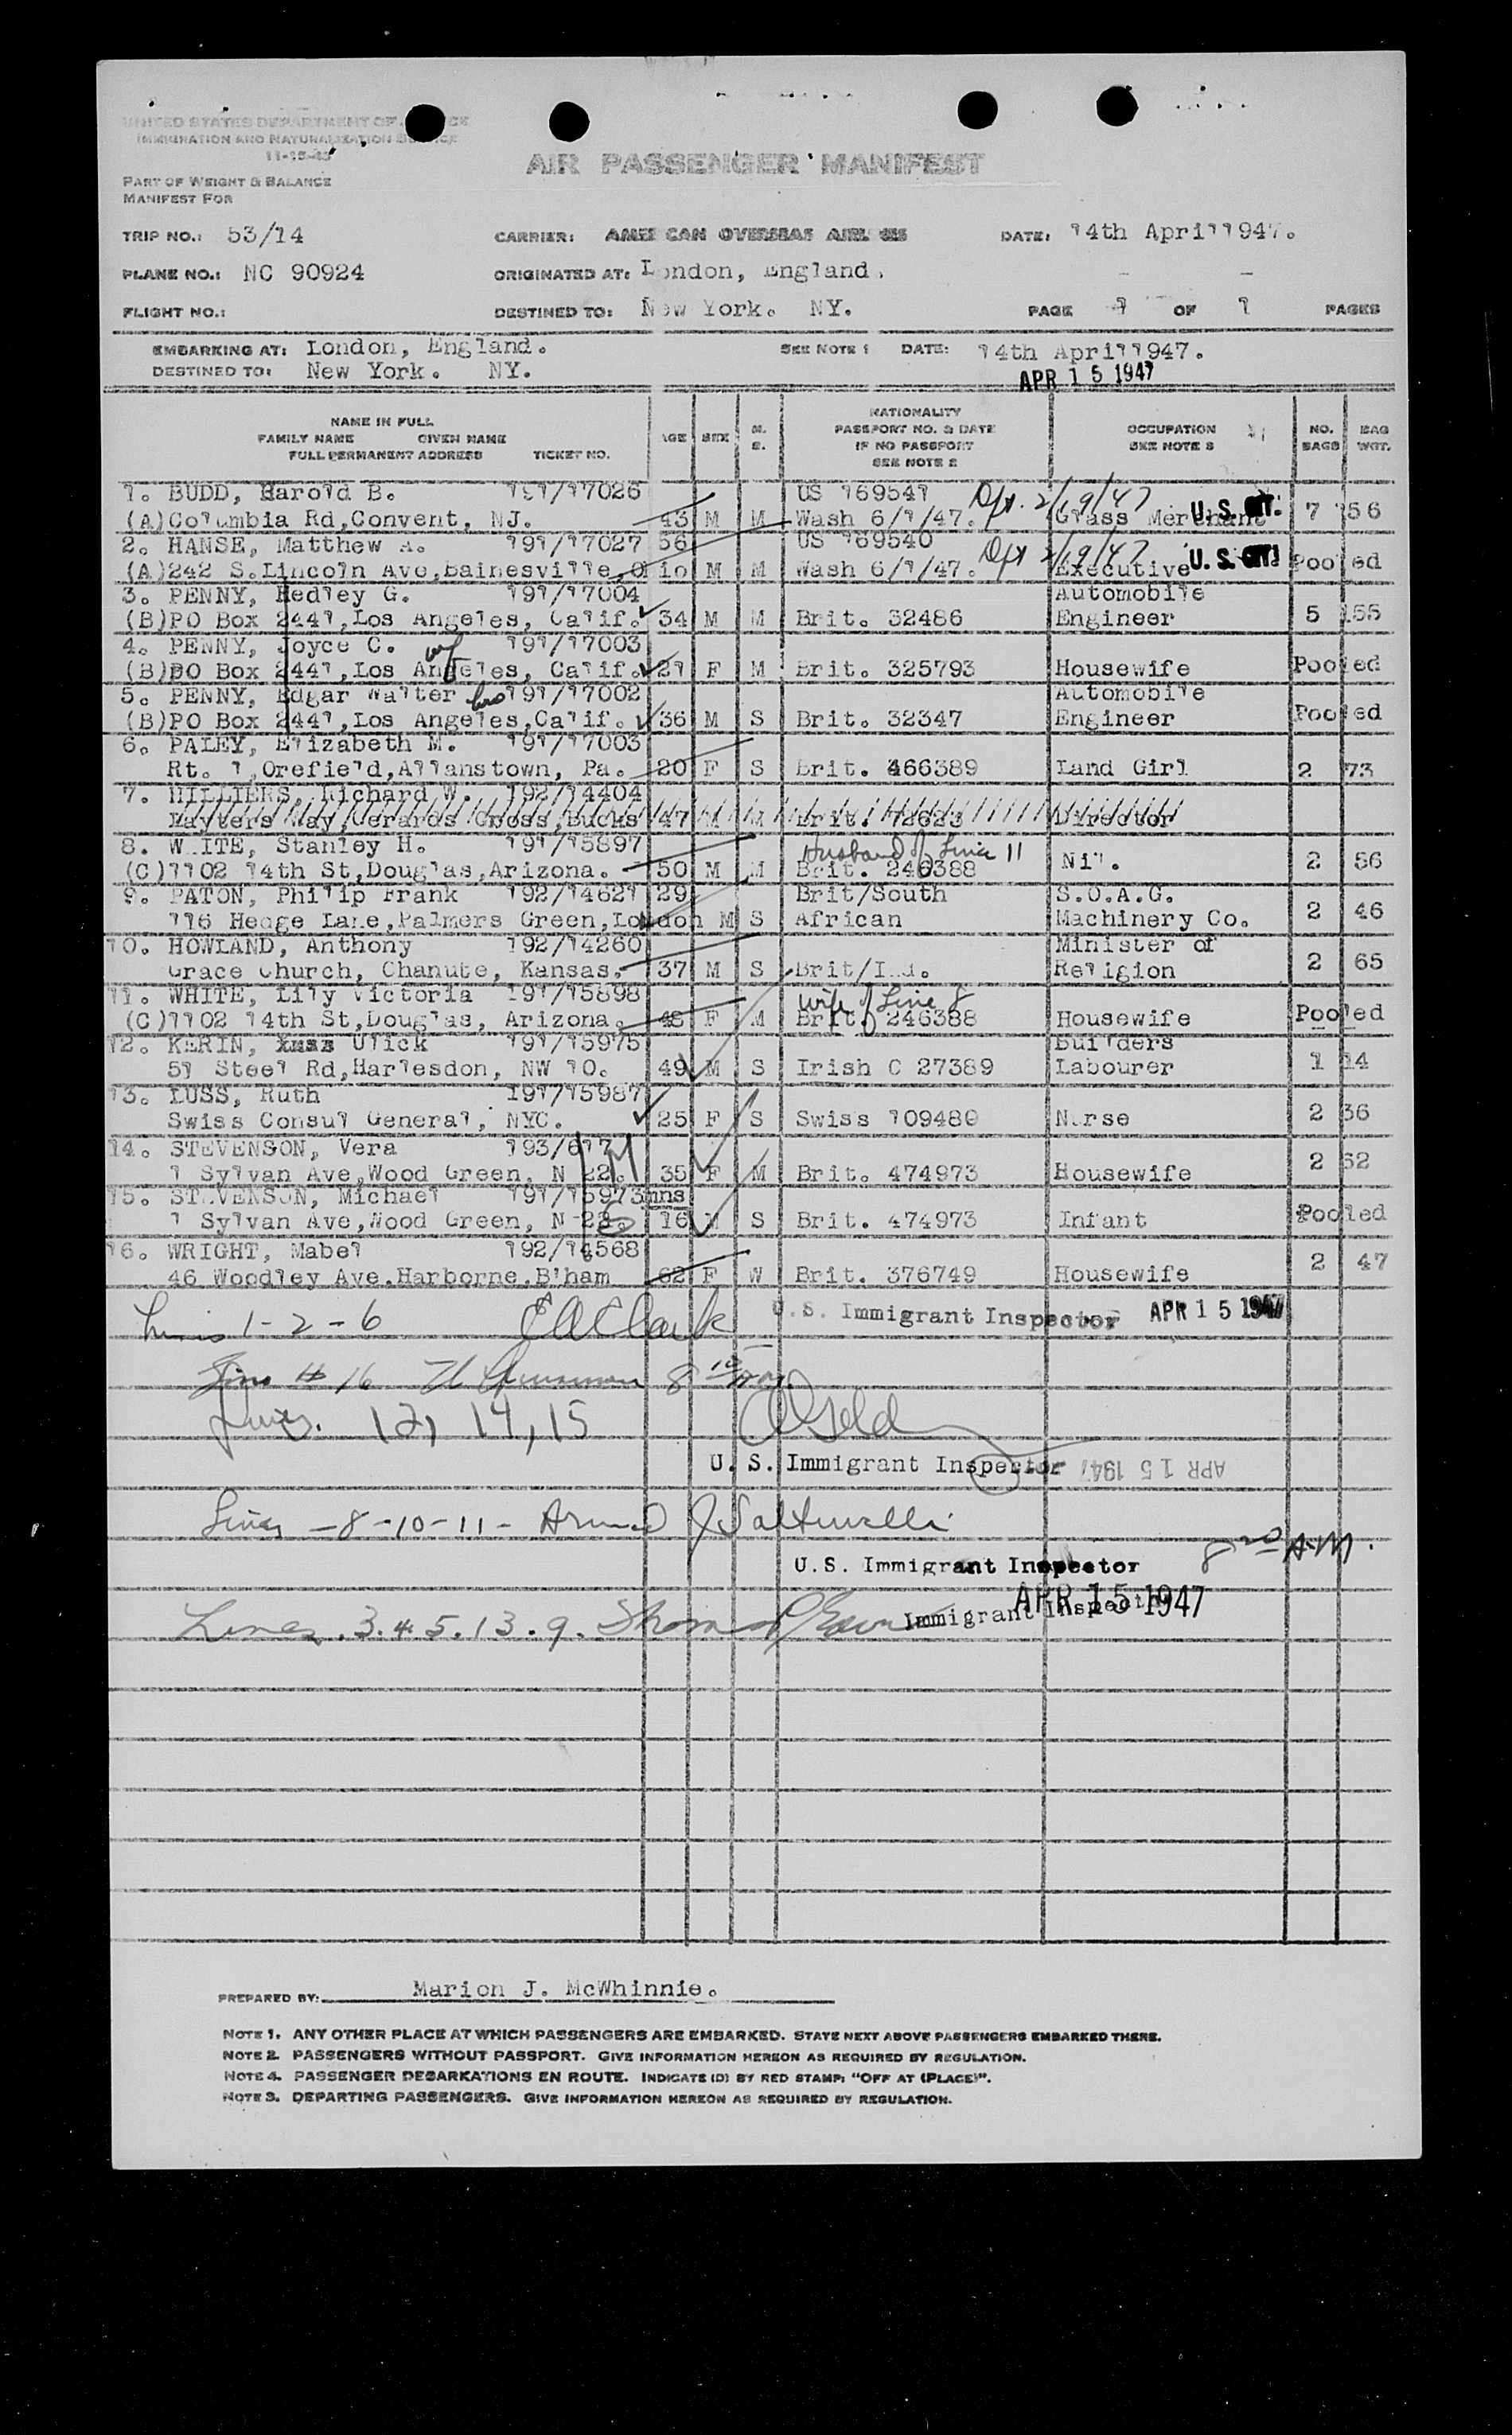 UNITED STATES DEPARTMENT OF
IMMIGRATION AND NATURALIZATION
11-15-45
AIR PASSENGER MANIFEST
PART OF WEIGHT & BALANCE
MANIFEST FOR
TRIP NO.: 53/14 CARRIER: AMERICAN OVERSEAS AIRLINES DATE: 14th April 1947.
PLANE NO.: NC 90924 ORIGINATED AT: London, England.
FLIGHT NO.: DESTINED TO: New York. NY. PAGE 1 OF 1 PAGES
EMBARKING AT: London, England. SEE NOTE 1 DATE: 14th April 1947.
DESTINED TO: New York. NY. APR 15 1947
NAME IN FULL
FAMILY NAME GIVEN NAME
FULL PERMANENT ADDRESS TICKET NO.
AGE SEX M. S.
NATIONALITY
PASSPORT NO. & DATE
IF NO PASSPORT
SEE NOTE 2
OCCUPATION
SEE NOTE 3
NO. BAGS BAG WGT.
1. BUDD, Harold B. 191/17026 US 169541 Dpt. 2/19/47
(A)Columbia Rd,Convent, NJ. 43 M M Wash 6/1/47. Glass Merchant U.S. CIT. 7 156
2. HANSE, Matthew A. 191/17027 56 US 169540 Dpt 2/19/47
(A)242 S.Lincoln Ave,Bainesville,Ohio M M Wash 6/1/47. Executive U.S. CIT. Pooled
3. PENNY, Hedley G. 191/17004 Automobile
(B)PO Box 2441,Los Angeles, Calif. 34 M M Brit. 32486 Engineer 5 155
4. PENNY, Joyce C. wf 191/17003
(B)PO Box 2441,Los Angeles, Calif. 21 F M Brit. 325793 Housewife Pooled
5. PENNY, Edgar Walter bro 191/17002 Automobile
(B)PO Box 2441,Los Angeles,Calif. 36 M S Brit. 32347 Engineer Pooled
6. PALEY, Elizabeth M. 191/17003
Rt. 1,Orefield,Allanstown, Pa. 20 F S Brit. 466389 Land Girl 2 73
7. HILLIERS, Richard W. 192/14404
Mayters Way,Gerards Cross,Bucks 47 M M Brit. 72623 Director
8. WHITE, Stanley H. 191/15897 Husband of Line 11
(C)1102 14th St,Douglas,Arizona. 50 M M Brit. 246388 Nil. 2 56
9. PATON, Philip Frank 192/14621 29 Brit/South S.O.A.G.
116 Hedge Lane,Palmers Green,London M S African Machinery Co. 2 46
10. HOWLAND, Anthony 192/14260 Minister of
Grace Church, Chanute, Kansas. 37 M S Brit/Ind. Religion 2 65
11. WHITE, Lily Victoria 191/15898 wife of Line 8
(C)1102 14th St,Douglas, Arizona. 48 F M Brit. 246388 Housewife Pooled
12. KERIN, Ulick 191/15975 Builders
51 Steel Rd,Harlesdon, NW 10. 49 M S Irish C 27389 Labourer 1 14
13. LUSS, Ruth 191/15987
Swiss Consul General, NYC. 25 F S Swiss 109489 Nurse 2 36
14. STEVENSON, Vera 193/617
1 Sylvan Ave,Wood Green, N 22. 35 F M Brit. 474973 Housewife 2 52
15. STEVENSON, Michael 191/15973 mns
1 Sylvan Ave,Wood Green, N 22. 16 M S Brit. 474973 Infant Pooled
16. WRIGHT, Mabel 192/14568
46 Woodley Ave.Harborne.B'ham 62 F W Brit. 376749 Housewife 2 47
Lines 1-2-6 U.S. Immigrant Inspector APR 15 1947
Line # 16
Lines. 12, 14, 15
U. S. Immigrant Inspector APR 15 1947
Lines -8-10-11-
U.S. Immigrant Inspector 8 20 AM.
APR 15 1947
Lines. 3. 4. 5. 13. 9. Immigrant Inspector
PREPARED BY: Marion J. McWhinnie.
NOTE 1. ANY OTHER PLACE AT WHICH PASSENGERS ARE EMBARKED. STATE NEXT ABOVE PASSENGERS EMBARKED THERE.
NOTE 2. PASSENGERS WITHOUT PASSPORT. GIVE INFORMATION HEREON AS REQUIRED BY REGULATION.
NOTE 4. PASSENGER DEBARKATIONS EN ROUTE. INDICATE (D) BY RED STAMP: "OFF AT (PLACE)".
NOTE 3. DEPARTING PASSENGERS. GIVE INFORMATION HEREON AS REQUIRED BY REGULATION.